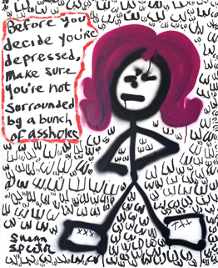 Before you
decide you're
depressed,
make sure
you're not
surrounded
by a bunch
of assholes
Susan
xxx